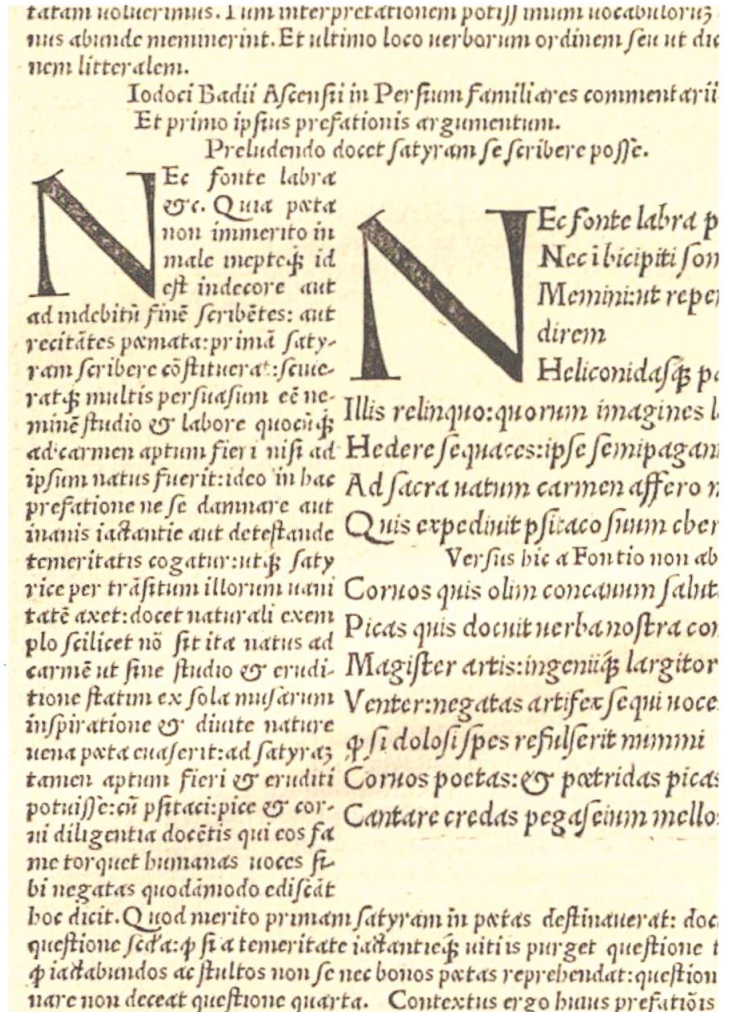 tatam uoluerimus. Tum interpretationem potissimum uocabuloruꝫ
nus abunde meminerint. Et ultimo loco uerborum ordinem seu ut dic
nem litteralem.
Iodoci Badii Ascensii in Persium familiares commentarii
Et primo ipsius prefationis argumentum.
Preludendo docet satyram se scribere posse.
NEc fonte labra
&c. Quia poeta
non immerito in
male inepteqꝫ id
est indecore aut
ad indebitū finē scribētes: aut
recitātes poemata: primā saty-
ram scribere cōstituerat: seuie-
ratqꝫ multis persuasum eē ne-
minē studio & labore quocūqꝫ
ad carmen aptum fieri nisi ad
ipsum natus fuerit: ideo in hac
prefatione ne se damnare aut
inanis iactantie aut detestande
temeritatis cogatur: utqꝫ saty
rice per trāsitum illorum uani
tatē axet: docet naturali exem
plo scilicet nō sit ita natus ad
carmē ut sine studio & erudi-
tione statim ex sola musarum
inspiratione & diuite nature
uena poeta euaserit: ad satyraꝫ
tamen aptum fieri & eruditi
potuisse: cū psitaci: pice & cor-
ui diligentia docētis qui eos fa
me torquet humanas uoces si-
bi negatas quodāmodo ediscāt
NEc fonte labra p
Nec ī bicipiti som
Memini: ut repe
direm
Heliconidasqꝫ pa
Illis relinquo: quorum imagines l
Hedere sequaces: ipse semipagan
Ad sacra uatum carmen affero n
Quis expediuit psitaco suum cher
Versus hic a Fontio non ab
Coruos quis olim concauum salut
Picas quis docuit uerba nostra con
Magister artis: ingeniiqꝫ largitor
Venter: negatas artifex sequi uoce
ꝙ si dolosi spes refulserit nummi
Coruos poetas: & poetridas picas
Cantare credas pegaseium mello
hoc dicit. Quod merito primam satyram in poetas destinauerat: doc
questione scđa: ꝙ si a temeritate iactantieqꝫ uitiis purget questione t
ꝙ iactabundos ac stultos non se nec bonos poetas reprehendat: question
nare non deceat questione quarta. Contextus ergo huius prefatiōis